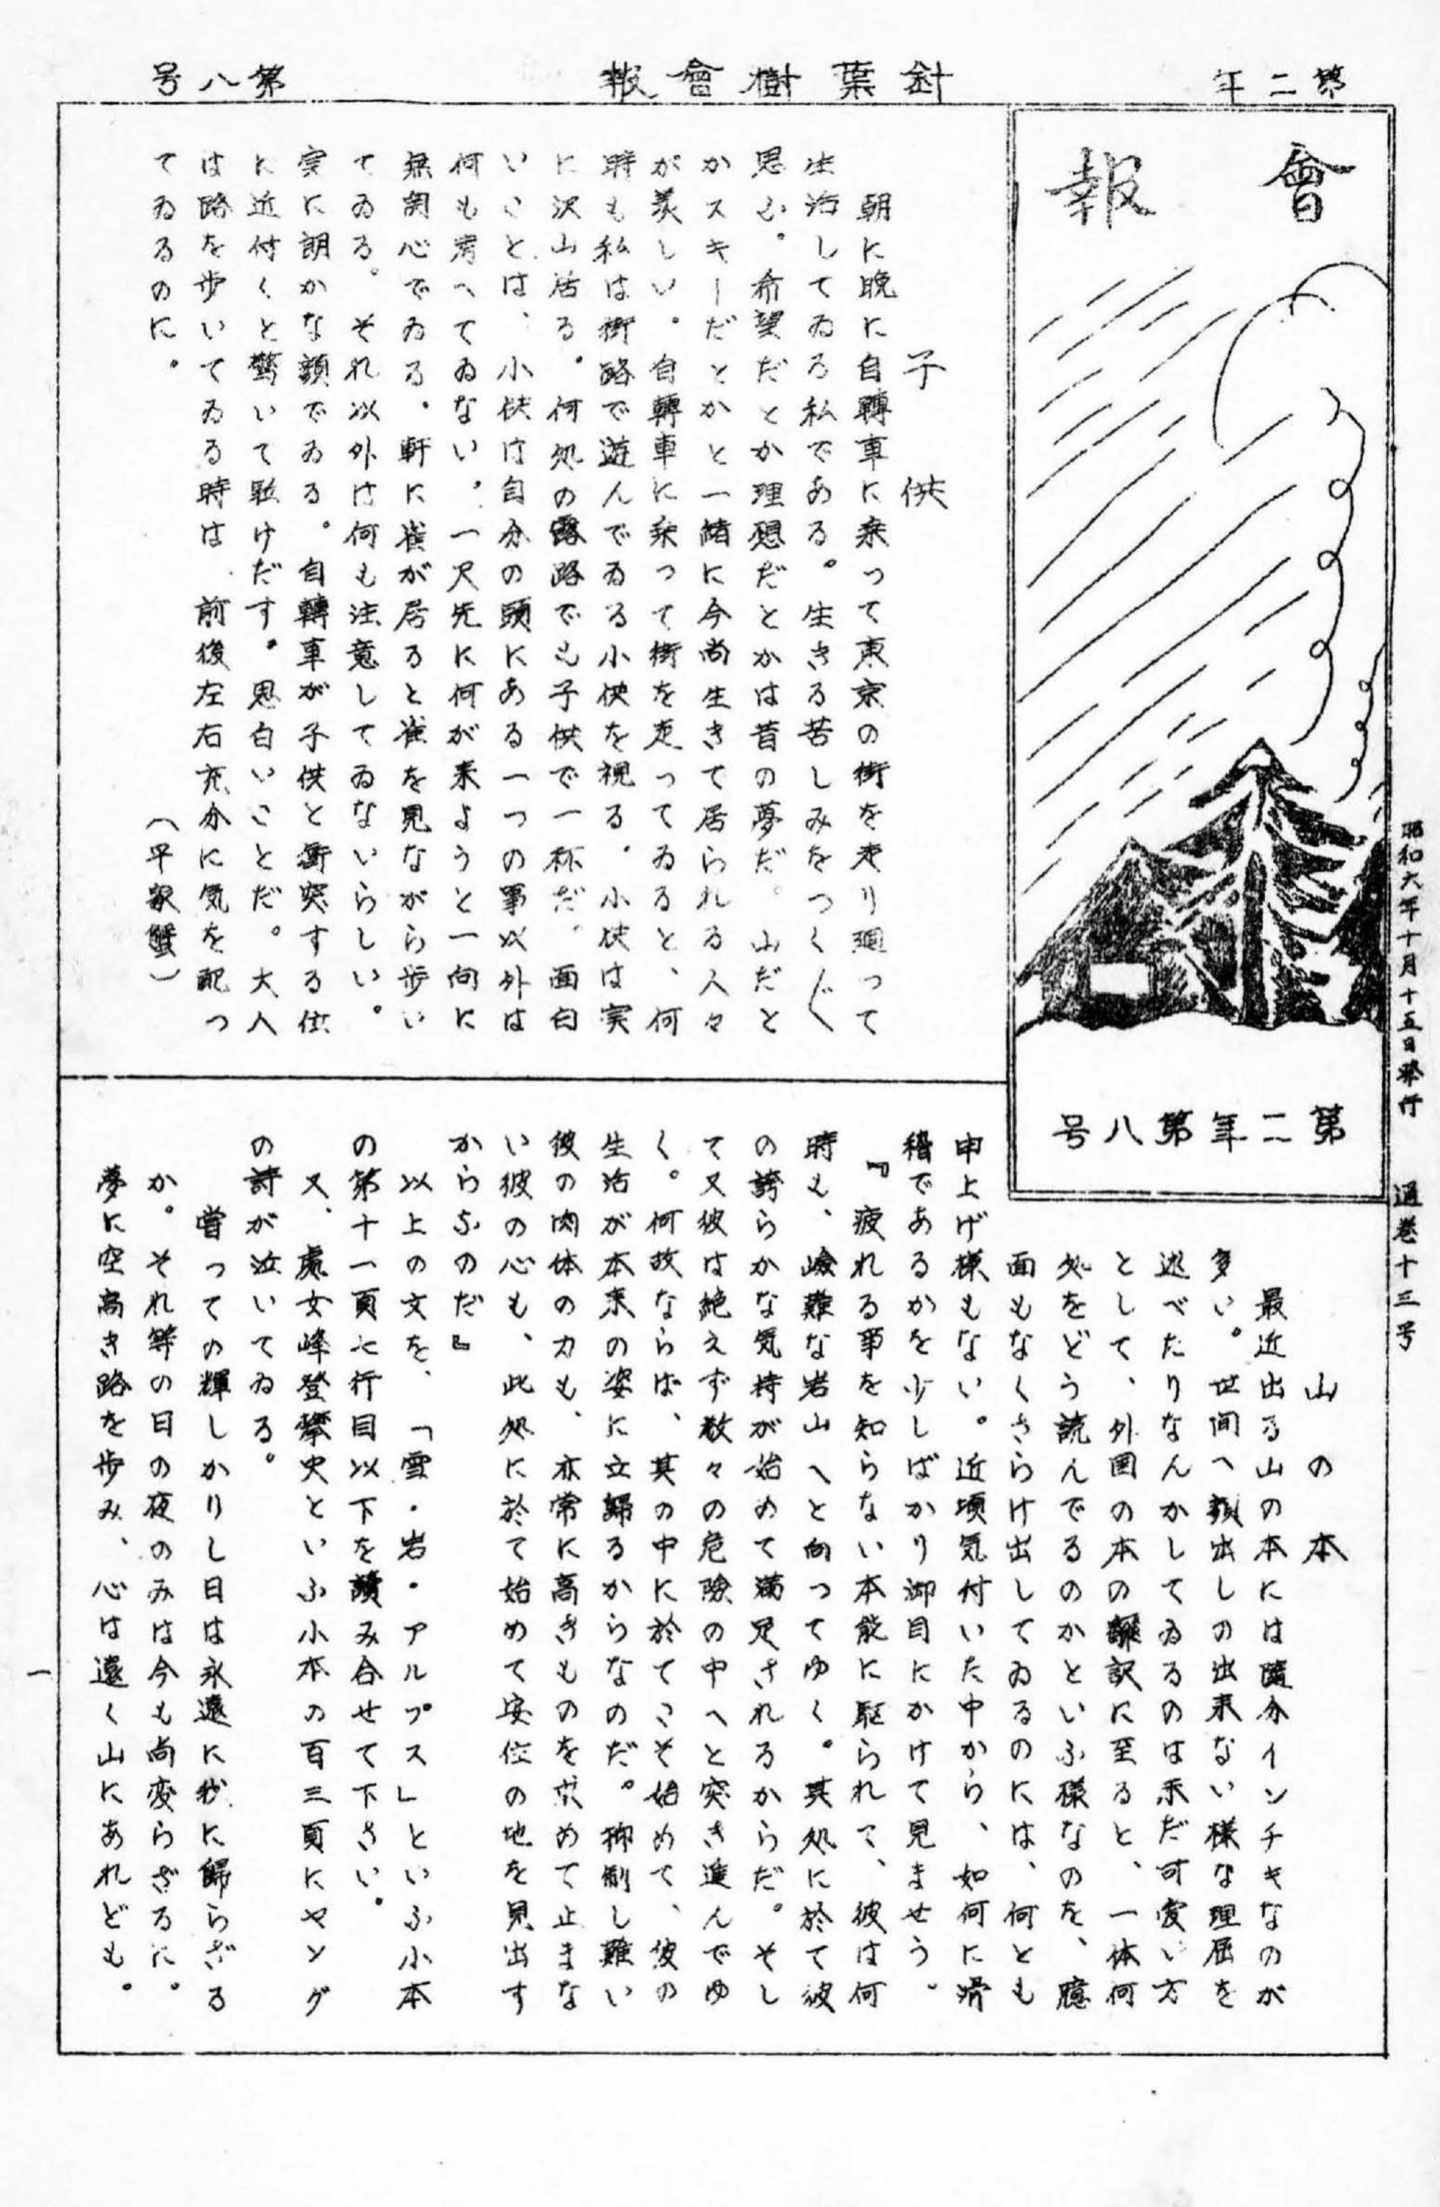 第二年
針葉樹會報
第八号
會報
第二年第八号
昭和六年十月十五日発行　通巻十三号
子供
朝に晩に自轉車に乗って東京の街を走り廻って
生活してゐる私である。生きる苦しみをつく〴〵
思ふ。希望だとか理想だとかは昔の夢だ。山だと
かスキーだとかと一緒に今尚生きて居られる人々
が羨しい。自轉車に乗って街を走ってゐると、何
時も私は街路で遊んでゐる小供を視る。小供は実
に沢山居る。何処の露路でも子供で一杯だ。面白
いことは、小供は自分の頭にある一つの事以外は
何も考へてゐない。一尺先に何が来ようと一向に
無関心でゐる。軒に雀が居ると雀を見ながら歩い
てゐる。それ以外は何も注意してゐないらしい。
実に朗かな顔でゐる。自轉車が子供と衝突する位
に近付くと驚いて駈けだす。思白いことだ。大人
は路を歩いてゐる時は、前後左右充分に気を配っ
てゐるのに。
（平家蟹）
山の本
最近出る山の本には随分インチキなのが
多い。世間へ顔出しの出来ない様な理屈を
述べたりなんかしてゐるのは未だ可愛い方
として、外国の本の飜訳に至ると、一体何
処をどう読んでるのかといふ様なのを、臆
面もなくさらけ出してゐるのには、何とも
申上げ様もない。近頃気付いた中から、如何に滑
稽であるかを少しばかり御目にかけて見ませう。
『疲れる事を知らない本能に駆られて、彼は何
時も、嶮難な岩山へと向つてゆく。其処に於て彼
の誇らかな気持が始めて満足されるからだ。そし
て又彼は絶えず数々の危険の中へと突き進んでゆ
く。何故ならば、其の中に於てこそ始めて、彼の
生活が本来の姿に立歸るからなのだ。抑制し難い
彼の肉体の力も、亦常に高きものを求めて止まな
い彼の心も、此処に於て始めて安位の地を見出す
からなのだ』
以上の文を、「雪・岩・アルプス」といふ小本
の第十一頁七行目以下を讀み合せて下さい。
又、處女峰登攀史といふ小本の百三頁にヤング
の詩が泣いてゐる。
嘗っての輝しかりし日は永遠に我に歸らざる
か。それ等の日の夜のみは今も尚変らざるに。
夢に空高き路を歩み、心は遠く山にあれども。
一